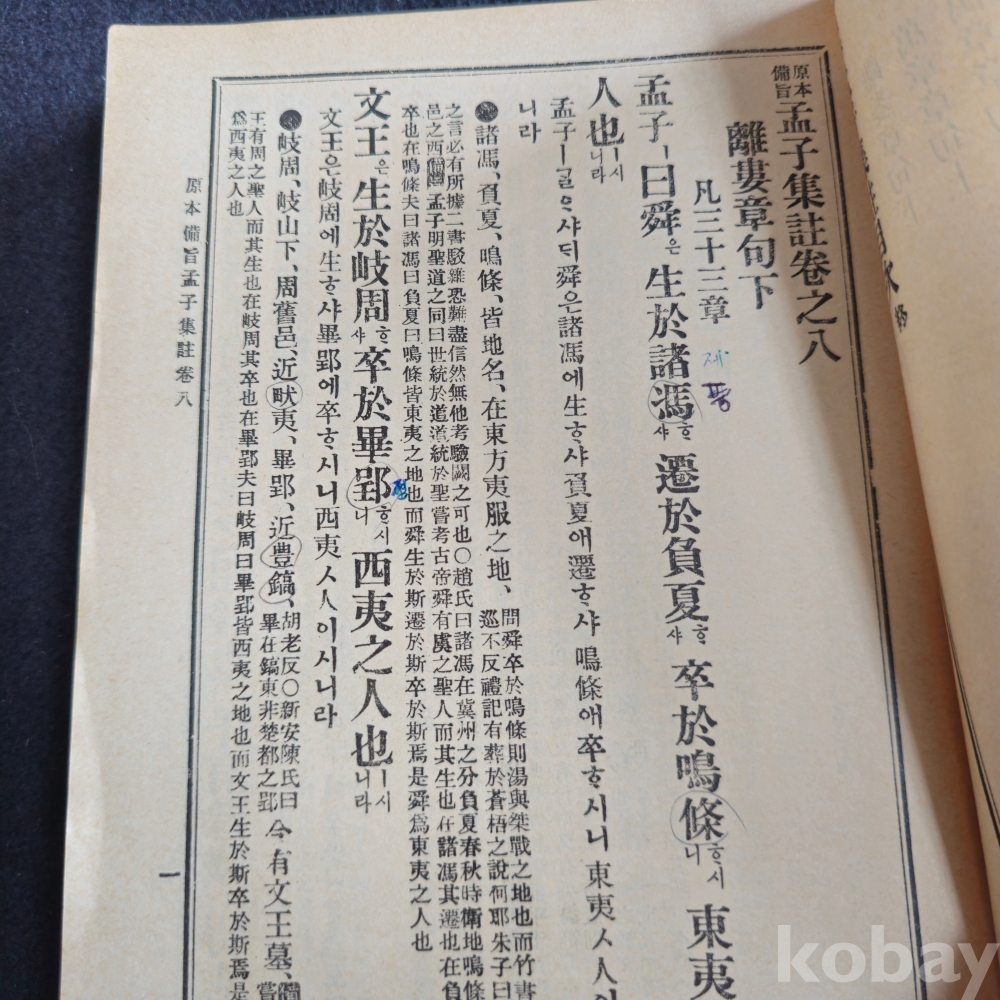 原本備旨 孟子集註卷之八
離婁章句下
凡三十三章
제
풍
孟子ㅣ曰舜은生於諸馮ᄒᆞ샤遷於負夏ᄒᆞ샤卒於鳴條ᄒᆞ시니東夷
人也ㅣ시니라
孟子ㅣᄀᆞᆯᄋᆞ샤ᄃᆡ舜은諸馮에生ᄒᆞ샤負夏애遷ᄒᆞ샤鳴條애卒ᄒᆞ시니東夷ㅅ人이
니라
諸馮、負夏、鳴條、皆地名、在東方夷服之地、
問舜卒於鳴條則湯與桀戰之地也而竹書
巡不反禮記有葬於蒼梧之說何耶朱子曰
之言必有所據二書駁雜恐難盡信然無他考驗闕之可也○趙氏曰諸馮在冀州之分負夏春秋時衛地鳴條
邑之西備旨孟子明聖道之同曰世統於道道統於聖嘗考古帝舜有虞之聖人而其生也在諸馮其遷也在負
卒也在鳴條夫曰諸馮曰負夏曰鳴條皆東夷之地也而舜生於斯遷於斯卒於斯焉是舜爲東夷之人也
文王은生於岐周ᄒᆞ샤卒於畢郢ᄒᆞ시니西夷之人也ㅣ시니라
文王은岐周에生ᄒᆞ샤畢郢에卒ᄒᆞ시니西夷ㅅ人이시니라
岐周、岐山下、周舊邑、近畎夷、畢郢、近豊鎬、
胡老反○新安陳氏曰
畢在鎬東非楚都之郢
今有文王墓、
王有周之聖人而其生也在岐周其卒也在畢郢夫曰岐周曰畢郢皆西夷之地也而文王生於斯卒於斯焉是
爲西夷之人也
原本備旨孟子集註卷八
一
kobay